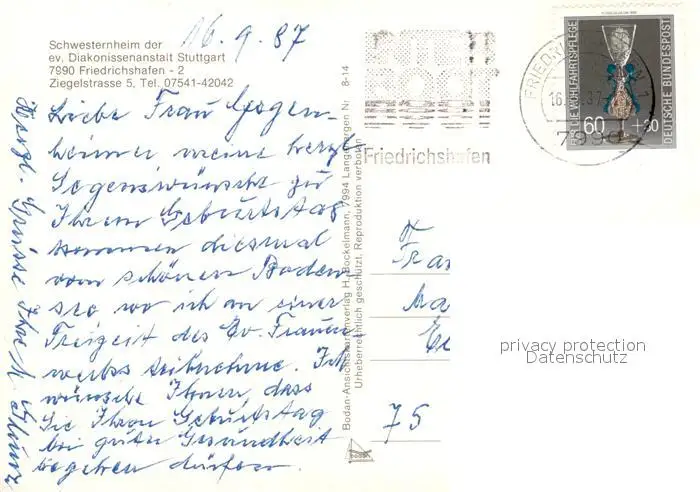 16.9.87
Schwesternheim der
ev. Diakonissenanstalt Stuttgart
7990 Friedrichshafen - 2
Ziegelstrasse 5, Tel. 07541-42042
Liebe Frau Gegen-
heimer meine herzl
Segenswünsche zu
Ihrem Geburtstag
kommen diesmal
vom schönen Boden-
see wo ich an einer
Freizeit des Ev. Frauen-
werks teilnehme. Ich
wünsche Ihnen, dass
Sie Ihren Geburtstag
bei guter Gesundheit
begehen dürfen.
Herzl. Grüsse Ihre
8-14
Bodan-Ansichtskartenverlag H. Bockelmann, 7994 Langenargen Nr.
Urheberrechtlich geschützt. Reproduktion verboten
bodan
Friedrichshafen
FRIEDRICHSHAFEN 1
7990
FÜR DIE WOHLFAHRTSPFLEGE
60 +30
DEUTSCHE BUNDESPOST
Fra
75
privacy protection
Datenschutz